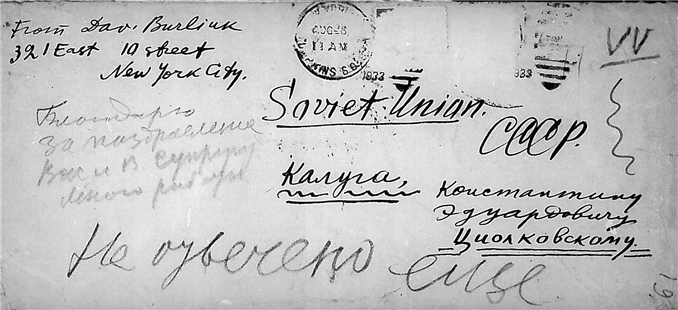 From Dav. Burliuk
321 East 10 street
New York City.
AUG 26
11 AM
1933
1933
VV
Soviet Union.
СССР.
Калуга,
Константину
Эдуардовичу
Циолковскому.
Благодарю
за поздравление
Вас и В супругу
Много работы
Не отвечено
еще